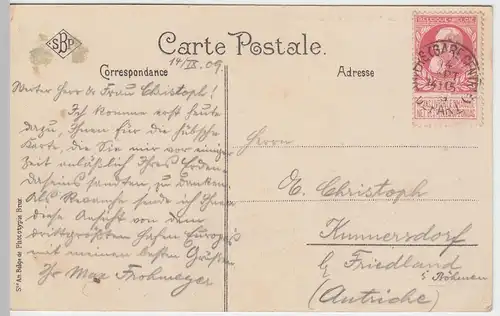 SBP
Carte Postale.
Correspondance
Adresse
14/IX. 09.
Werter Herr & Frau Christoph!
Ich komme erst heute
dazu, Ihnen für die hübsche
Karte, die Sie mir vor einiger
Zeit anläßlich Ihres
Daseins sandten, zu danken.
Als Revanche sende ich Ihnen
diese Ansicht von dem
drittgrößten Hafen Europas
mit meinen besten Grüßen
Ihr Max Frohmeyer
Herrn
E. Christoph
Kunnersdorf
b/ Friedland
i/ Böhmen
(Autriche)
Sté An. Belge de Phototypie, Brux.